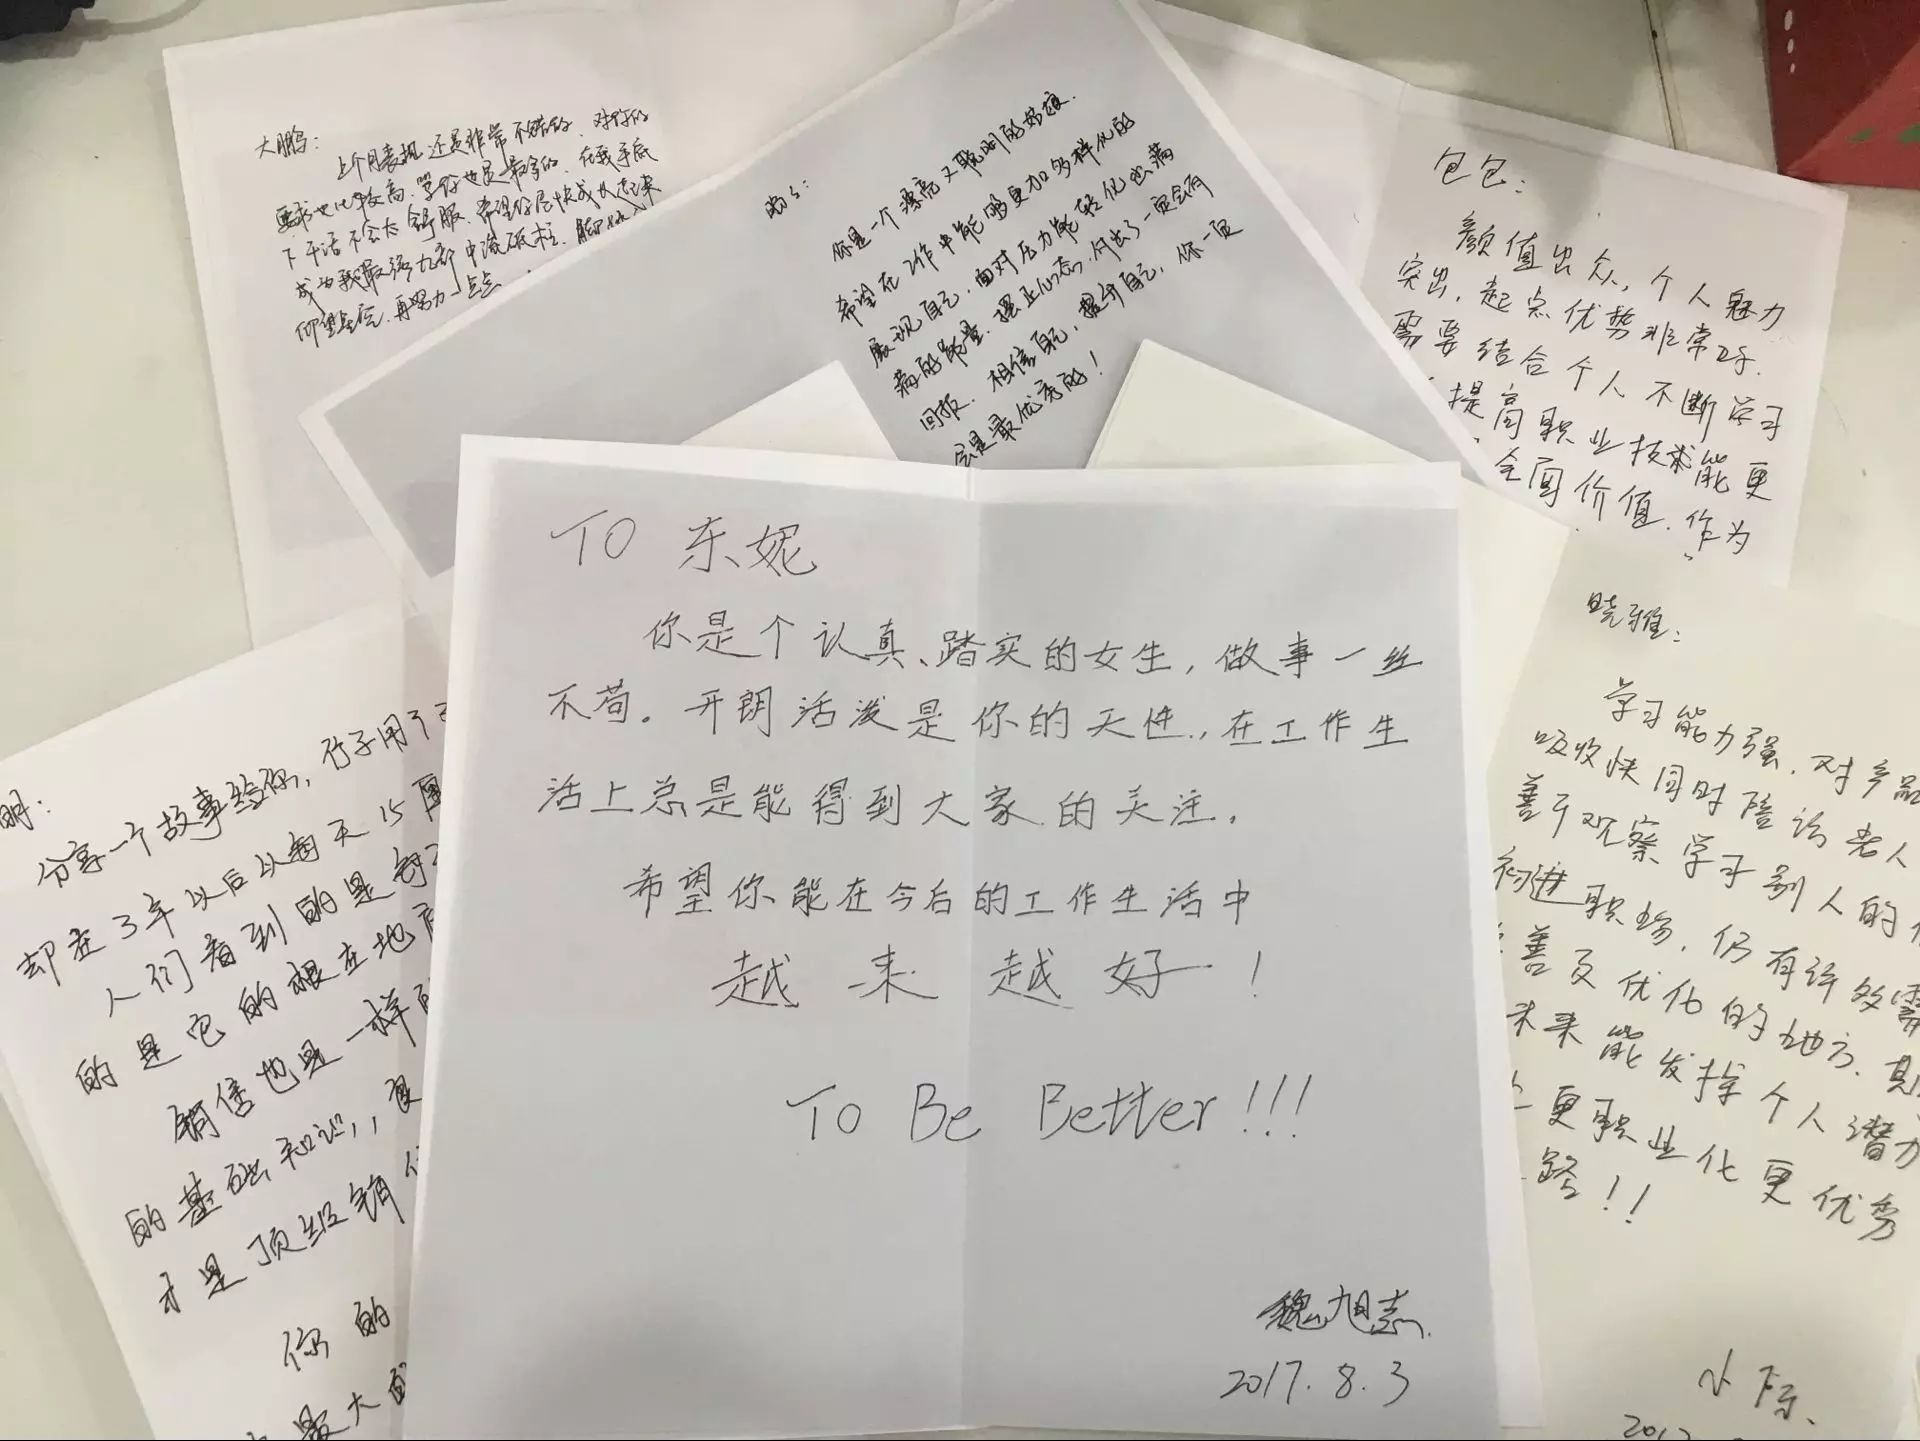 大鹏：
上个月表现还是非常不错的，对你的
要求也比较高，骂你也是最多的，在我手底
下干活不会太舒服，希望你尽快成长起来
成为我最强九部中流砥柱，脚踏
仰望星空，再努力一点点
你是一个漂亮又聪明的姑娘，
希望在工作中能够更加多样化的
展现自己，面对压力能轻化出满
满的能量，摆正心态，付出了一定会有
回报，相信自己，提升自己，你一定
会是最优秀的！
包包：
颜值出众，个人魅力
突出，起点优势非常好，
需要结合个人不断学习
提高职业技术能更
全面价值，作为
TO 东妮
你是个认真、踏实的女生，做事一丝
不苟。开朗活泼是你的天性，在工作生
活上总是能得到大家的关注。
希望你能在今后的工作生活中
越来越好！
To Be Better!!!
魏旭志
2017.8.3
明：
分享一个故事给你，竹子用了
却在3年以后以每天15厘
人们看到的是
的是它的根在地底
销售也是一样
的基础知识，
才是顶级销
你的
最大
晓雅：
学习能力强，对产品
吸收快同时陪访老人
善于观察学习别人的
初进职场，仍有许多需
善及优化的地方，期
未来能发挥个人潜力
更职业化更优秀
路！！
小陈